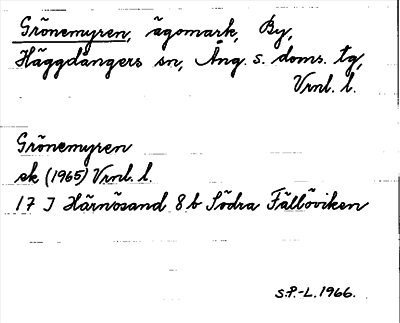 Grönemyren, ägomark, By,
Häggdångers sn, Ång. s. doms. tg,
Vrnl. l.
Grönemyren
ek (1965) Vrnl. l.
17 J Härnösand 8 b Södra Fällöviken
S.P.-L. 1966.